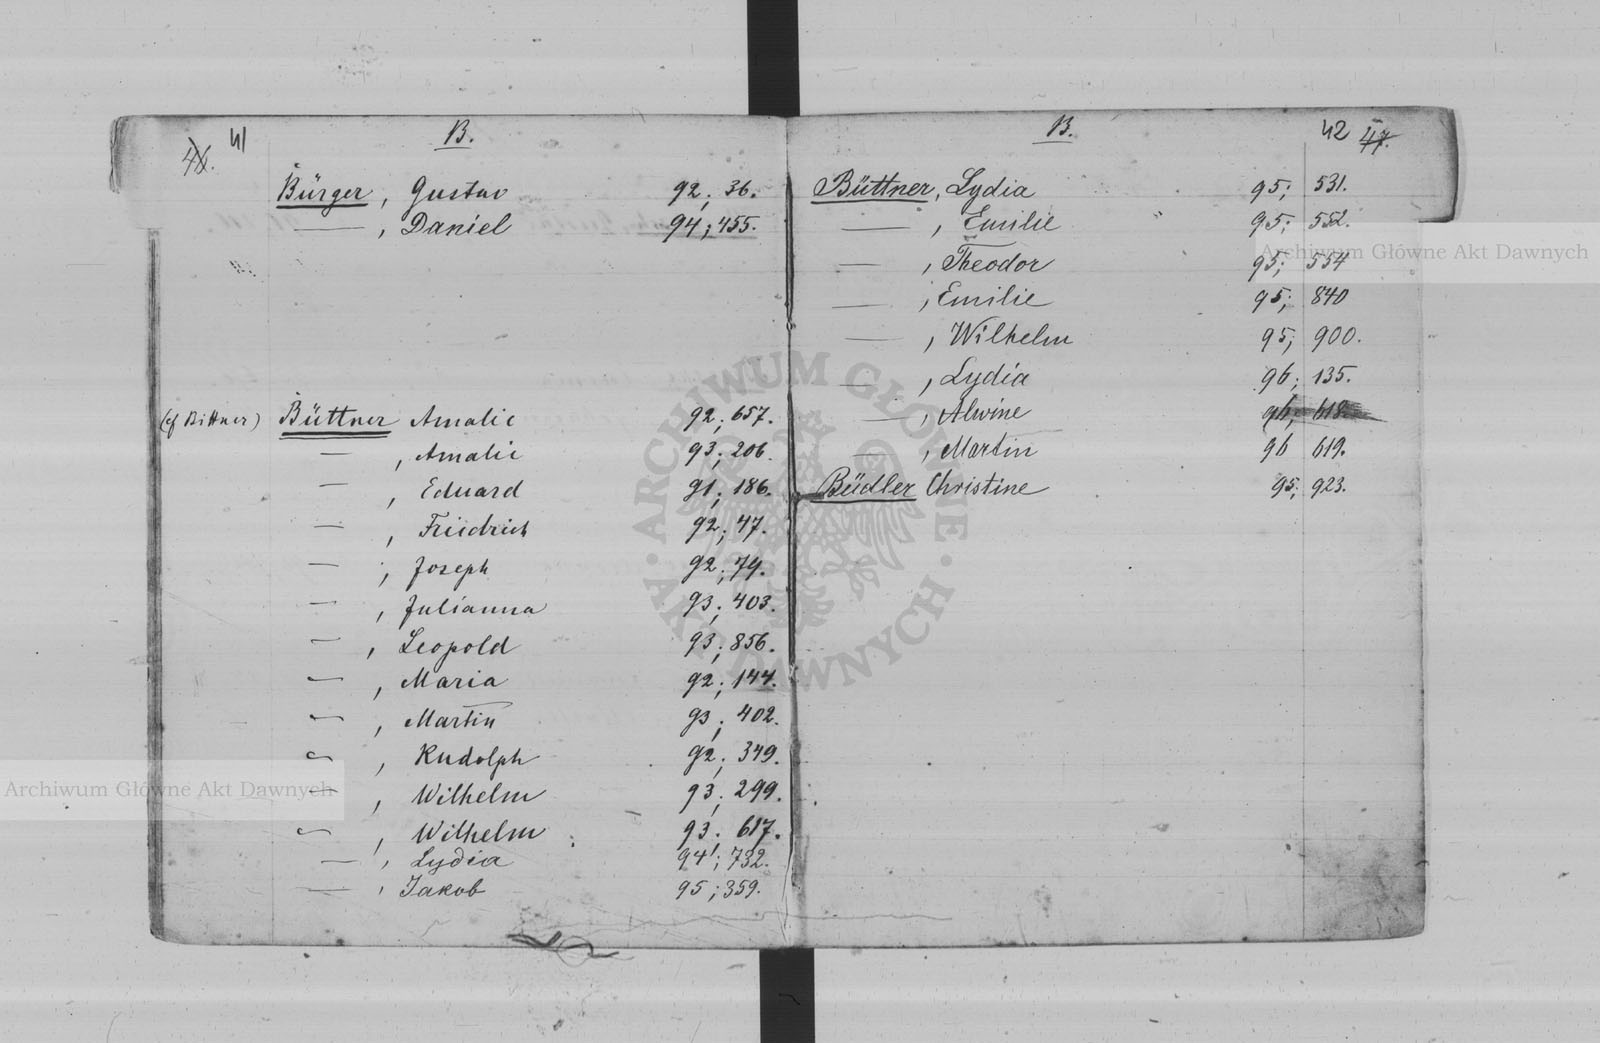 46. 41 B.
Bürger, Gustav 92; 36.
—, Daniel 94; 455.
(cf Bittner) Büttner Amalie 92; 657.
—, Amalie 93; 206.
—, Eduard 91; 186.
—, Friedrich 92; 47.
—, Joseph 92; 79.
—, Julianna 93; 403.
—, Leopold 93; 856.
—, Maria 92; 144.
—, Martin 93; 402.
—, Rudolph 92; 349.
—, Wilhelm 93; 299.
—, Wilhelm 93; 617.
—, Lydia 94; 732.
—, Jakob 95; 359.
B. 42 47.
Büttner, Lydia 95; 531.
—, Emilie 95; 552.
—, Theodor 95; 554
—, Emilie 95; 840
—, Wilhelm 95; 900.
—, Lydia 96; 135.
—, Alwine 96; 618.
—, Martin 96 619.
Büdler Christine 95; 923.
Archiwum Główne Akt Dawnych
Archiwum Główne Akt Dawnych
ARCHIWUM GŁÓWNE AKT DAWNYCH